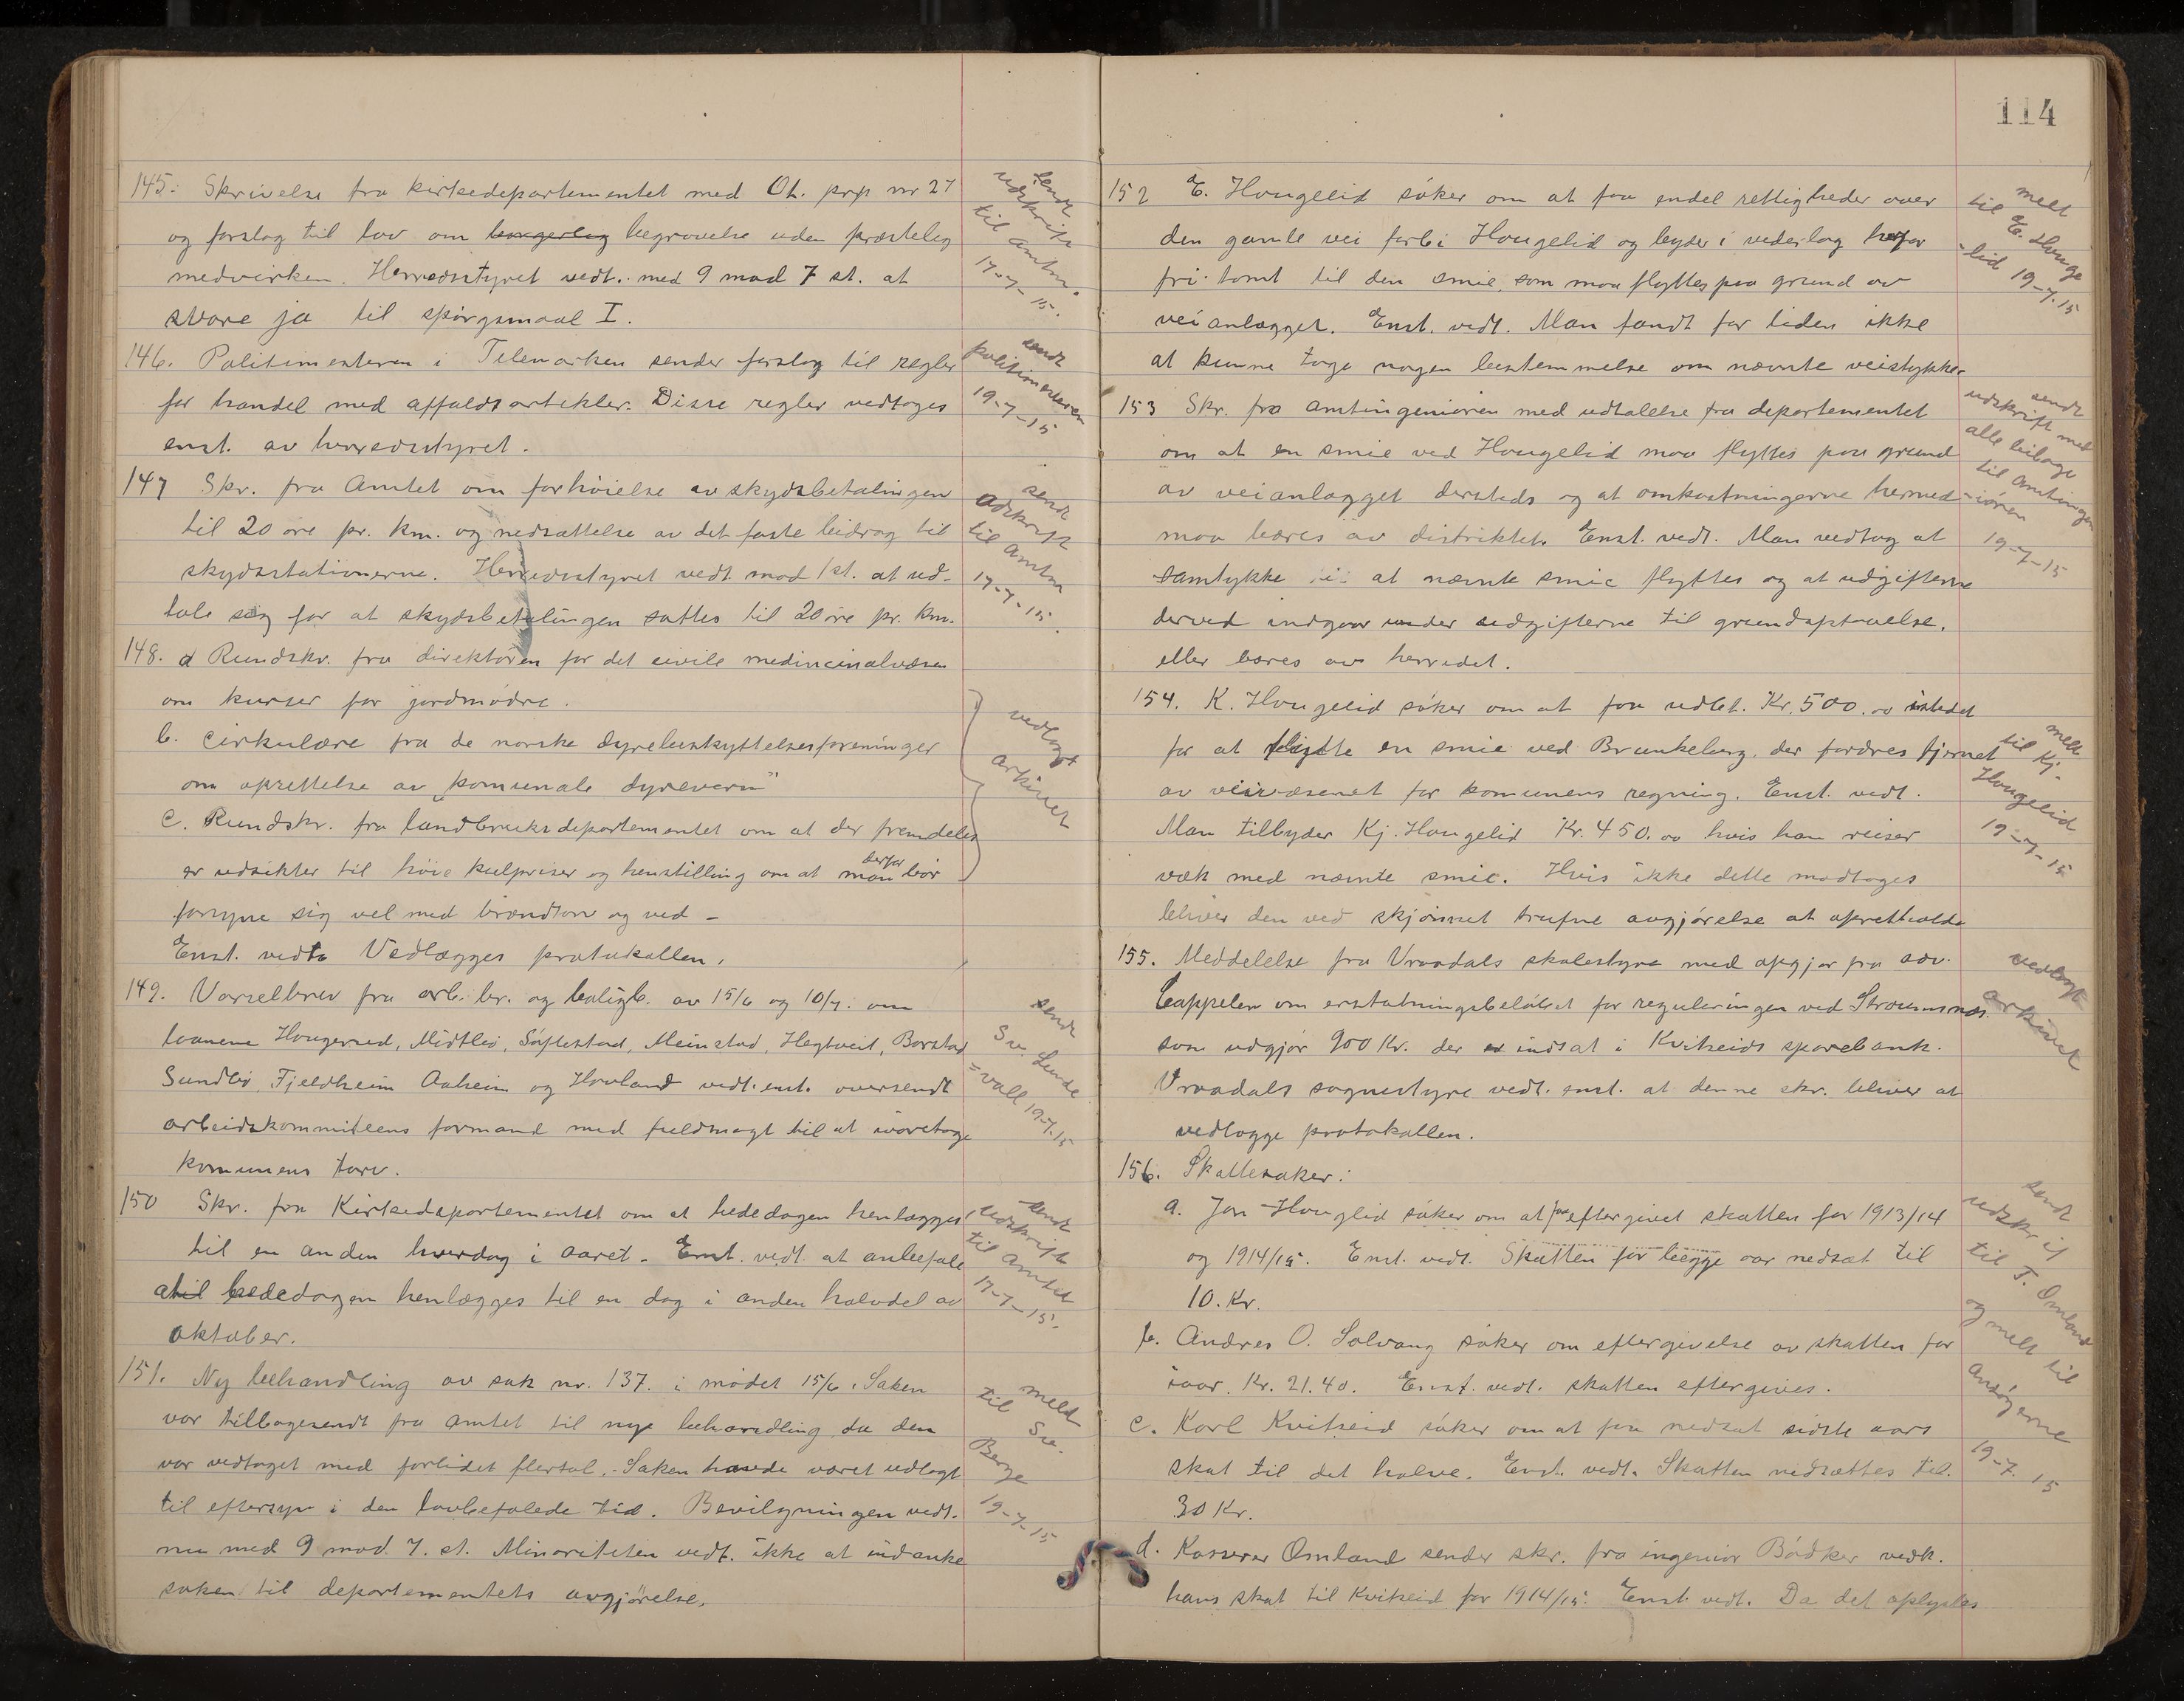 145. Skrivelse fra kirkedepartementet med Ot. prp nr 27
og forslag til lov om borgerlig begravelse uden præstelig
medvirken. Herredsstyret vedt. med 9 mod 7 st. at
svare ja til spörgsmaal I.
sendt
udskrift
til amtm.
17-7-15.
146. Politimesteren i Telemarken sender forslag til regler
for handel med affaldsartikler. Disse regler vedtoges
enst. av herredsstyret.
sendt
politimesteren
19-7-15
147 Skr. fra Amtet om forhöielse av skydsbetalingen
til 20 öre pr. km. og nedsættelse av det faste bidrag til
skydsstationerne. Herredsstyret vedt. mod 1 st. at ud-
tale sig for at skydsbetalingen sættes til 20 öre pr. km.
sendt
udskrift
til amtm
17-7-15.
148. a Rundskr. fra direktören for det civile medincinalvæsen
om kurser for jordmödre.
b. Cirkulære fra de norske dyrebeskyttelsesforeninger
om oprettelse av „komunale dyrevern"
c. Rundskr. fra landbruksdepartementet om at der fremdeles
er udsikter til höie kulpriser og henstilling om at man derfor bör
forsyne sig vel med brændtorv og ved -
Enst. vedt. Vedlægges protokollen.
vedlagt
arkivet
149. Varselbrev fra arb. br. og boligb. av 15/6 og 10/7. om
laanene Hougerud, Midtbö, Söftestad, Meinstad, Hegtveit, Borstad
Sundbö, Fjeldheim Aaheim og Hovland vedt. enst. oversendt
arbeidskommiteens formand med fuldmagt til at ivaretage
komunens tarv.
sendt
Sv. Lunde
=vall 19-7-15
150 Skr. fra Kirkedepartementet om at bededagen henlægges
til en anden hverdag i aaret. Enst. vedt. at anbefale
at bededagen henlægges til en dag i anden halvdel av
oktober.
sendt
udskrift
til amtet
17-7-15.
151. Ny behandling av sak nr. 137. i mödet 15/6. Saken
var tilbagesendt fra amtet til nye behandling, da den
var vedtaget med forlidet flertal. Saken havde været udlagt
til eftersyn i den lovbefalede tid. Bevilgningen vedt.
nu med 9 mod. 7. st. Minoriteten vedt. ikke at indanke
saken til departementets avgjörelse.
meldt
til Sv.
Berge
19-7-15
114
152 E. Hougelid söker om at faa endel rettigheder over
den gamle vei forbi Hougelid og byder i vederlag herfor
fri tomt til den smie, som maa flyttes paa grund av
veianlægget. Enst. vedt. Man fandt for tiden ikke
at kunne tage nogen bestemmelse om nævnte veistykke.
meldt
til E. Houge
-lid 19-7-15
153 Skr. fra amtingeniören med udtalelse fra departementet
om at en smie ved Hougelid maa flyttes paa grund
av veianlægget dersteds og at omkostningerne hermed
maa bæres av distriktet. Enst. vedt. Man vedtog at
samtykke i at nævnte smie flyttes og at udgifterne
derved indgaar under udgifterne til grundafstaaelse,
eller bæres av herredet.
sendt
udskrift med
alle bilage
til amtingen
-iören
19-7-15
154. K. Hougelid söker om at faa udbet. Kr. 500.00 istedet
for at flytte en smie ved Brunkeberg, der fordres fjernet
av veivæsenet for komunens regning. Enst. vedt.
Man tilbyder Kj. Hougelid Kr. 450.00 hvis han reiser
væk med nævnte smie. Hvis ikke dette modtages
bliver den ved skjönnet trufne avgjörelse at opretholde
meldt
til Kj.
Hougelid
19-7-15
155. Meddelelse fra Vraadals skolestyre med opgjör fra adv.
Cappelen om erstatningsbelöbet for reguleringen ved Straumsnes.
som udgjör 900 Kr. der er indsat i Kviteseids sparebank.
Vraadals sognestyre vedt. enst. at denne skr. bliver at
vedlægge protokollen.
vedlagt
arkivet
156. Skattesaker:
a. Jon Houglid söker om at faa eftergivet skatten for 1913/14
og 1914/15. Enst. vedt. Skatten for begge aar nedsat til
10. Kr.
b. Andres O. Solvang söker om eftergivelse av skatten for
iaar. Kr. 21.40. Enst. vedt. skatten eftergives.
c. Karl Kviteseid söker om at faa nedsat sidste aars
skat til det halve. Enst. vedt. Skatten nedsættes til.
30 Kr.
d. Kasserer Omland sender skr. fra ingeniör Bödker vedk.
hans skat til Kviteseid for 1914/15. Enst. vedt. Da det oplystes
sendt
udskrif
til T. Omland
og meldt til
ansögerne
19-7. 15